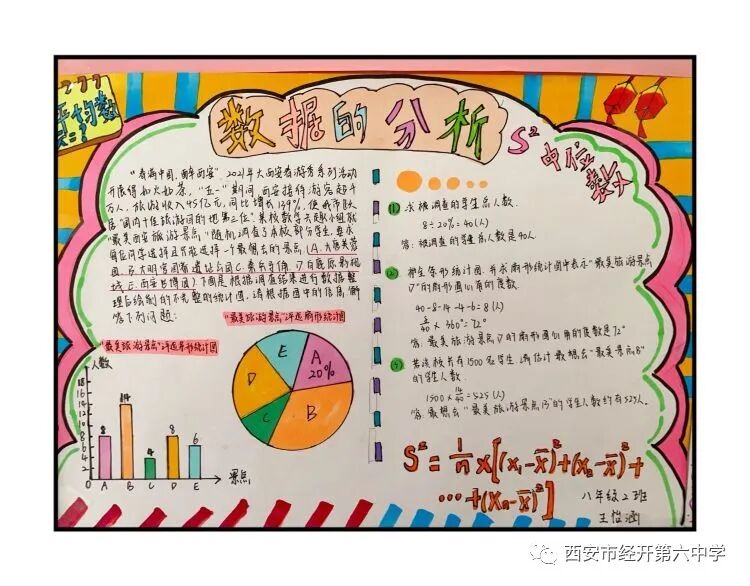 平均数
数据的分析
S²
中位数
"春满中国,醉平西安",2021年大西安春游季系列活动
开展得如火如荼,"五一"期间,西安接待游客超千
万人,旅游收入45亿元,同比增长139%,使我市跃
居"国内十佳旅游目的地第三位".某校数学兴趣小组就
"最美西安旅游景点"随机调查了本校部分学生,要求
每位同学选择且只能选择一个最想去的景点,(A.大唐芙蓉
园,B.大明宫国家遗址公园,C.秦岭牛角,D.白鹿原影视
城,E.西安博园).下面是根据调查结果进行数据整
理后绘制的不完整的统计图,请根据图中的信息,解
答下列问题:
"最美旅游景点"评选条形统计图
人数
18
16
14
12
10
8
6
4
2
0
8
14
4
8
6
A B C D E
景点
"最美旅游景点"评选扇形统计图
E
A
20%
D
C
B
(1) 求被调查的学生总人数.
8÷20%=40(人)
答:被调查的学生总人数是40人.
(2) 补全条形统计图,并求扇形统计图中表示"最美旅游景点
D"的扇形圆心角的度数.
40-8-14-4-6=8(人)
8/40 × 360°=72°
答:最美旅游景点D的扇形圆心角的度数是72°
(3) 若该校共有1500名学生,请估计最想去"最美景点B"
的学生人数.
1500×14/40=525(人)
答:最想去"最美旅游景点B"的学生人数约有525人.
S²=1/n×[(x₁-x̄)²+(x₂-x̄)²+
…+(xₙ-x̄)²]
八年级2班
西安市经开第六中学